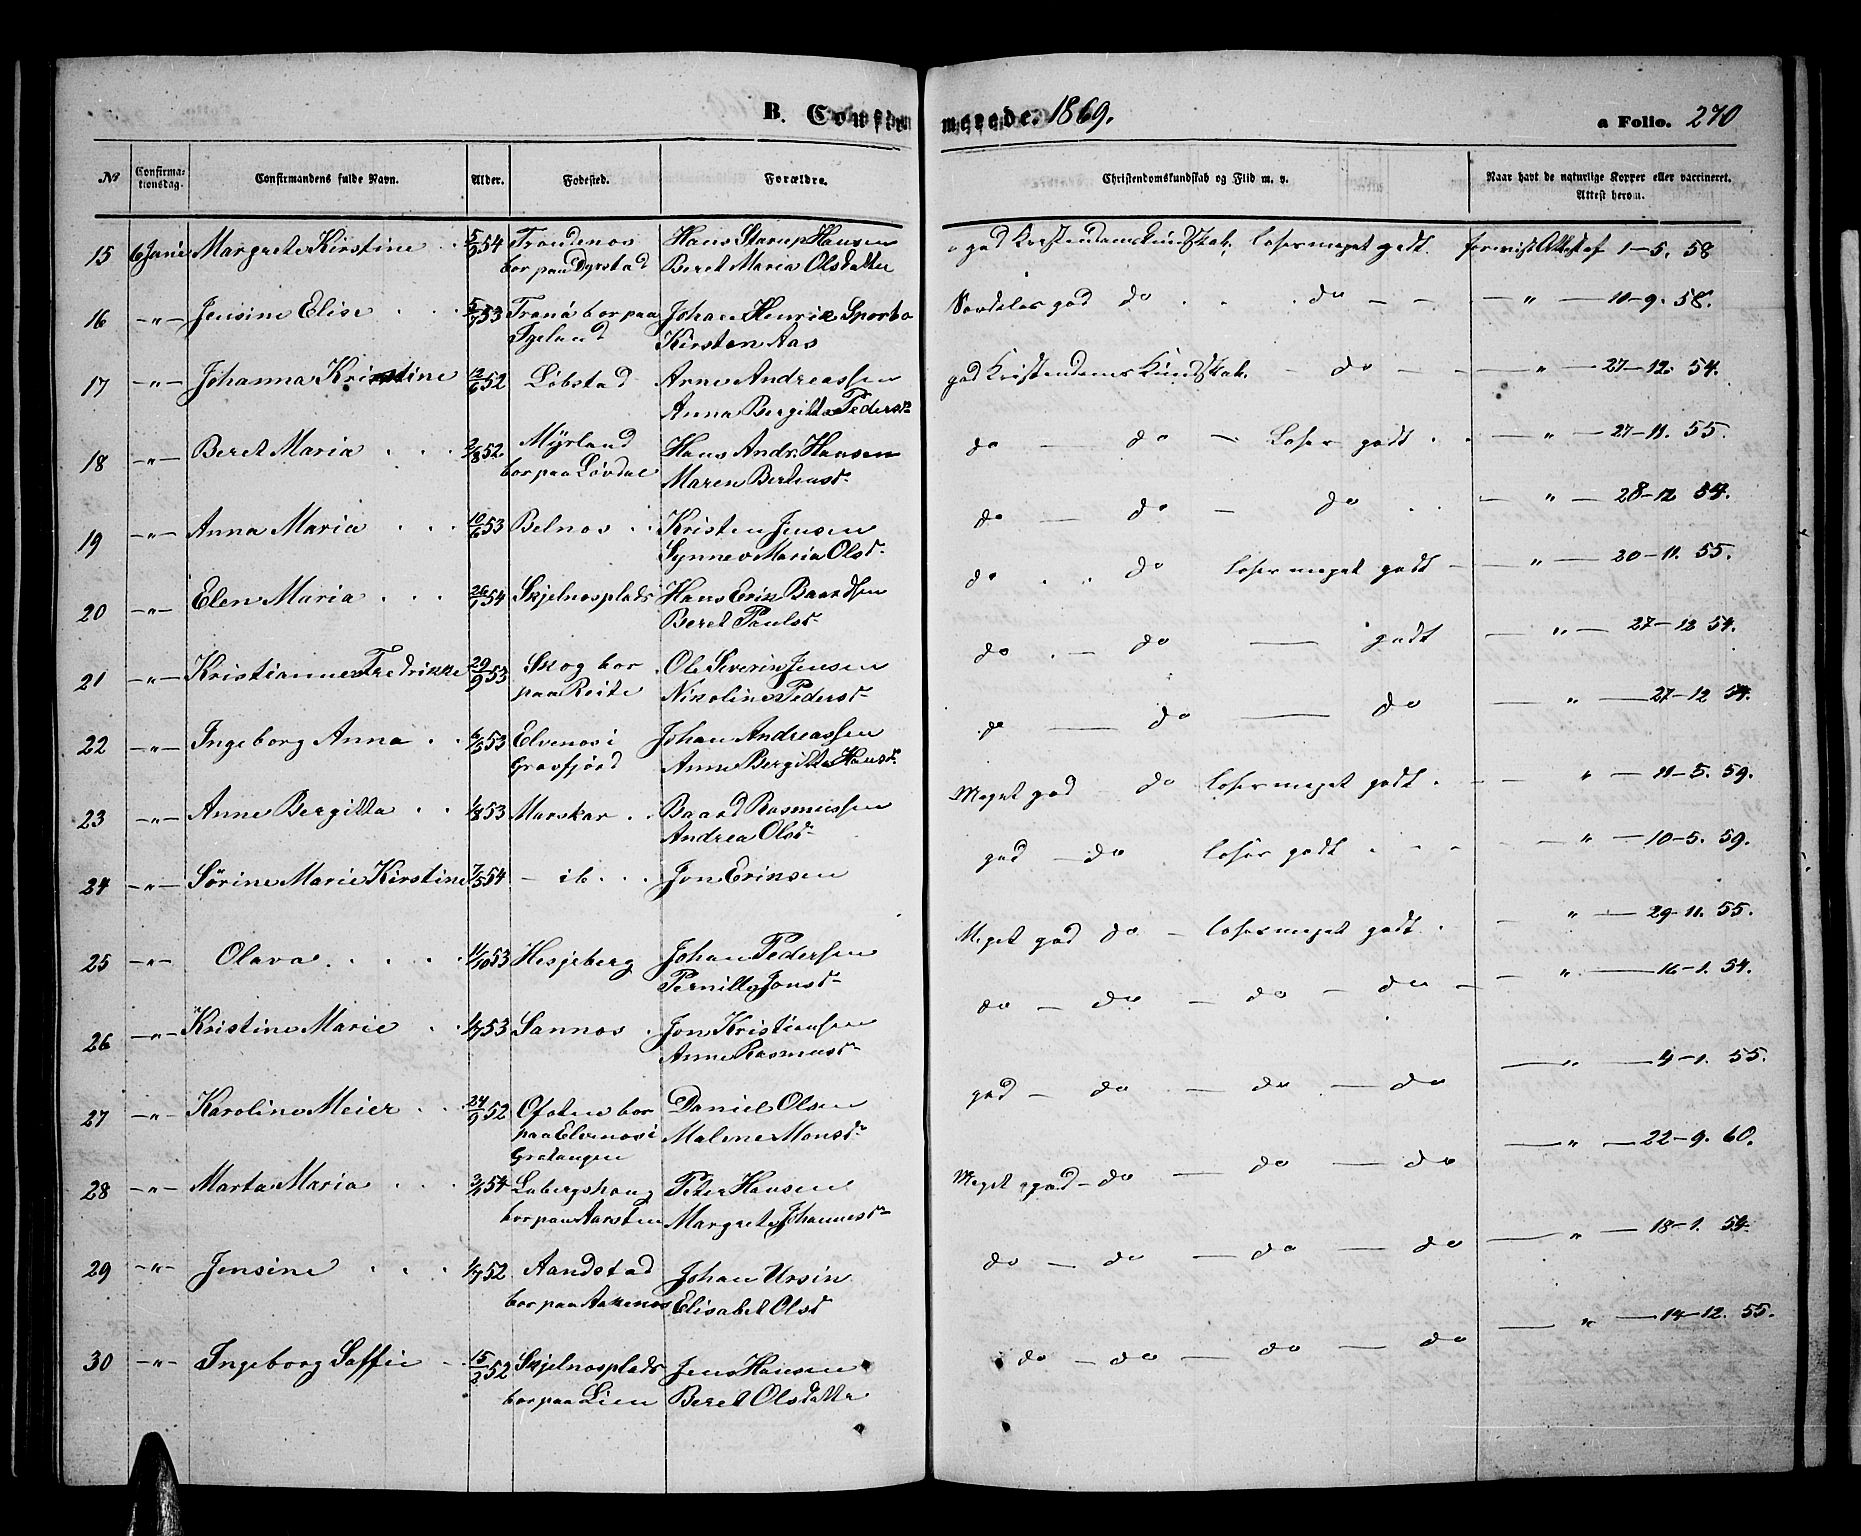 B. Confirmerede. 1869. a Folio. 270
No Confirmationsdag. Confirmandens fulde Navn. Alder. Fødested. Forældre. Christendomskundskab og Flid m. v. Naar havt de naturlige Kopper eller vaccineret. Attest herom.
15 6 Juni Margrete Kirstine 5/9 54 Trondenes Hans Starup Hansen god Kristendomskundskab. læser meget godt. forevist Attest af 1-5. 58
bor paa Dyrstad Beret Maria Olsdatter
16 -"- Jensine Elise 5/7 53 Tranø bor paa Johan Henrik Sporbo Særdeles god do do - - - " - 11-9. 58.
Fjeland Kirsten Aas
17 -"- Johanna Kristine 12/6 52 Løbstad Arne Andreassen god Kristendoms Kundskab. - do - - - " - 27-12. 54.
Anna Bergitta Pedersd.
18 -"- Beret Maria 2/8 52 Myrland Hans Andr. Hansen do - do - læser godt - " - 27-11. 55.
bor paa Løvdal Maren Berteusd.
19 -"- Anna Maria 10/6 53 Belnes Kristen Jensen do - do - do - " - 28-12 54.
Synnev Maria Olsd.
20 -"- Elen Maria 26/1 54 Skjelnesplads Hans Erik Baardsen do do læser meget godt - - " - 20-11. 55.
Beret Paulsd.
21 -"- Kristianne Fredrikke 29/9 53 Skog bor Ole Severin Jensen do - do - godt - " - 27-12 54.
paa Reite Nikoline Pedersd.
22 -"- Ingeborg Anna 6/5 53 Elvenes i Johan Andreassen do - do - do - " - 27-12 54.
Gravfjord Anne Bergitta Hansd.
23 -"- Anne Bergitta 1/8 53 Marskar Baard Rasmussen Meget god - do læser meget godt - - " - 11-5. 59.
Andrea Olsd.
24 -"- Sørine Marie Kirstine 7/5 54 - ib. Jon Eriksen god - do læser godt - " - 10-5. 59.
25 -"- Olava 1/10 53 Hesjeberg Johan Pedersen Meget god do - læser meget godt - " - 29-11. 55.
Pernille Jonsd.
26 -"- Kristine Marie 1/7 53 Sannes Jon Kristiansen do - do - do - do - - " - 16-1. 54.
Anne Rasmusd.
27 -"- Karoline Meier 24/9 52 Ofoten bor Daniel Olsen god - do - do - do - " - 4-1. 55.
paa Elvenes i Malene Monsd.
Gratangen
28 -"- Marta Maria 54 Labergshaug Peter Hansen Meget god - do - do - do - " - 22-9. 60.
bor paa Aarsten Margrete Johannesd.
29 -"- Jensine 1/7 52 Aandstad Johan Ursin do - do - do - do - " - 18-1. 54.
bor paa Aakenes Elisabet Olsd
30 -"- Ingeborg Soffie - 15/2 52 Skjelnesplads Jens Hansen do - do - do - do - " - 14-12. 55.
bor paa Lien Beret Olsdatter